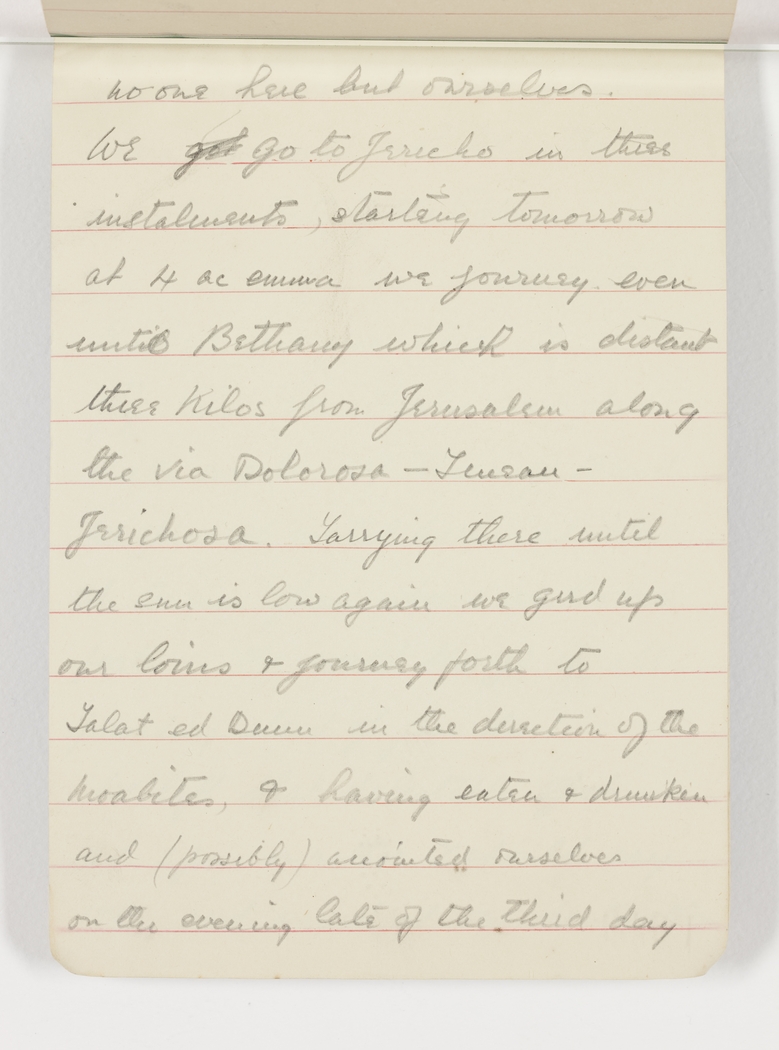 no one here but ourselves.
We got go to Jericho in three
instalments, starting tomorrow
at 4 ac emma we journey even
until Bethany which is distant
three Kilos from Jerusalem along
the Via Dolorosa —
Jerichosa. Tarrying there until
the sun is low again we gird up
our loins & journey forth to
Talat ed Dumm in the direction of the
Moabites, & having eaten & drunken
and (possibly) anointed ourselves
on the evening late of the third day